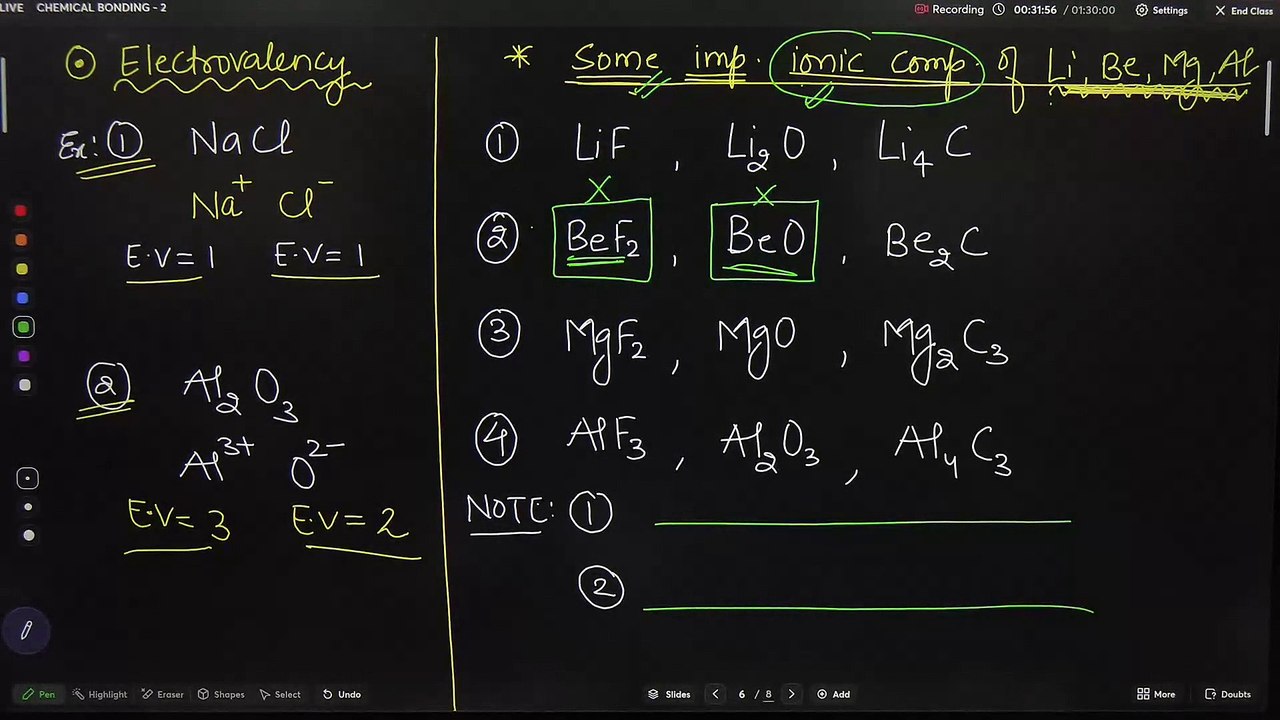 LIVE CHEMICAL BONDING - 2
Recording 00:31:56 / 01:30:00 Settings End Class
Electrovalency
Ex: ① NaCl
Na⁺ Cl⁻
E.V = 1 E.V = 1
② Al₂O₃
Al³⁺ O²⁻
E.V = 3 E.V = 2
* Some imp. ionic comp. of Li, Be, Mg, Al
① LiF, Li₂O, Li₄C
X X
② BeF₂, BeO, Be₂C
③ MgF₂, MgO, Mg₂C₃
④ AlF₃, Al₂O₃, Al₄C₃
NOTE: ①
②
Pen Highlight Eraser Shapes Select Undo Slides < 6 / 8 > Add More Doubts